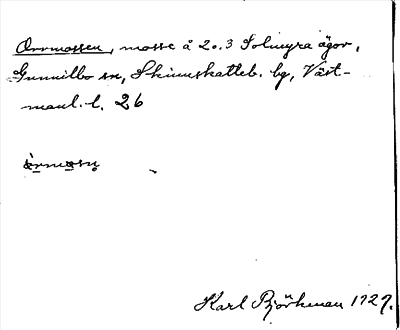 Orrmossen, mosse å 2 o. 3 Solmyra ägor,
Gunnilbo sn, Skinnskatteb. hd, Väst-
manl. l. 26
Karl Björkman 1927.